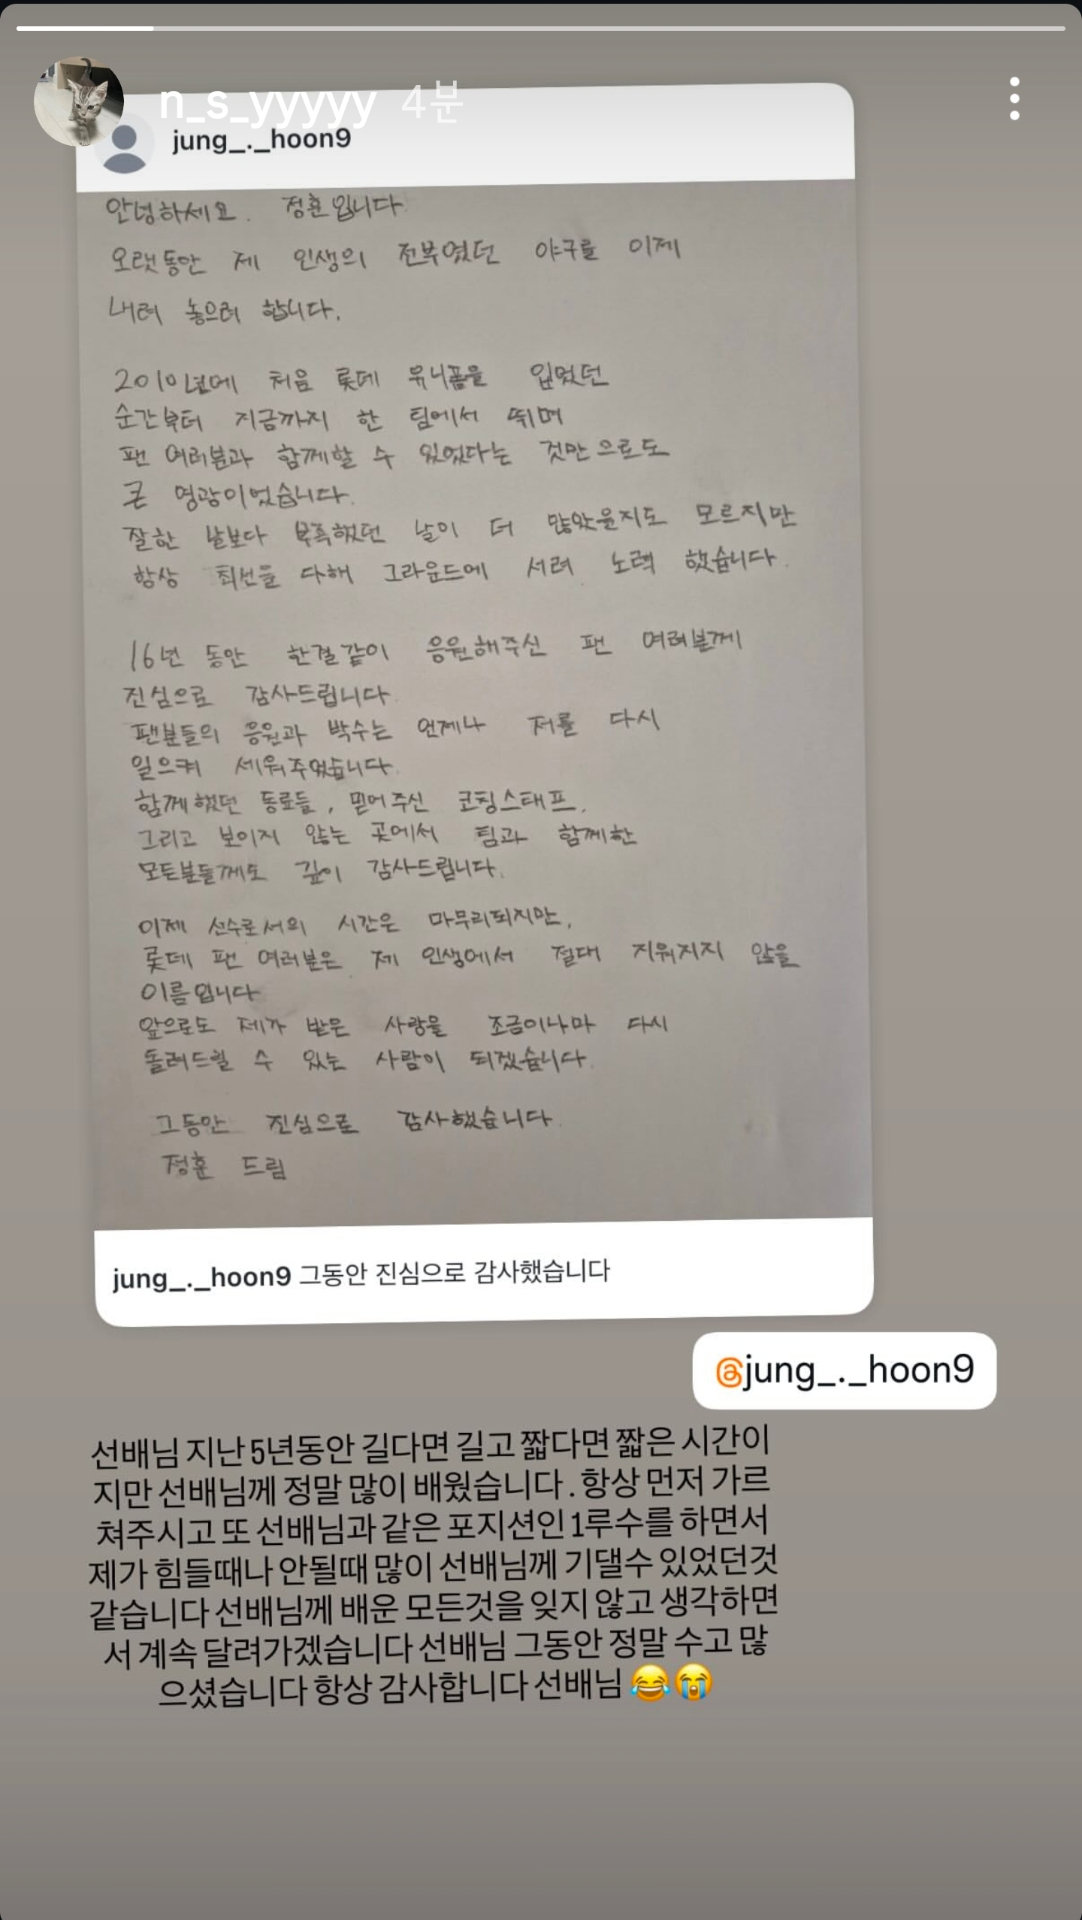 n_s_yyyyy 4분
jung_._hoon9
안녕하세요. 정훈입니다.
오랫동안 제 인생의 전부였던 야구를 이제
내려 놓으려 합니다.
2010년에 처음 롯데 유니폼을 입었던
순간부터 지금까지 한 팀에서 뛰며
팬 여러분과 함께할 수 있었다는 것만으로도
큰 영광이었습니다.
잘한 날보다 부족했던 날이 더 많았을지도 모르지만
항상 최선을 다해 그라운드에 서려 노력 했습니다.
16년 동안 한결같이 응원해주신 팬 여러분께
진심으로 감사드립니다.
팬분들의 응원과 박수는 언제나 저를 다시
일으켜 세워주었습니다.
함께했던 동료들, 믿어주신 코칭스태프,
그리고 보이지 않는 곳에서 팀과 함께한
모든분들께도 깊이 감사드립니다.
이제 선수로서의 시간은 마무리되지만,
롯데 팬 여러분은 제 인생에서 절대 지워지지 않을
이름입니다
앞으로도 제가 받은 사랑을 조금이나마 다시
돌려드릴 수 있는 사람이 되겠습니다.
그동안 진심으로 감사했습니다.
정훈 드림
jung_._hoon9 그동안 진심으로 감사했습니다
jung_._hoon9
선배님 지난 5년동안 길다면 길고 짧다면 짧은 시간이
지만 선배님께 정말 많이 배웠습니다. 항상 먼저 가르
쳐주시고 또 선배님과 같은 포지션인 1루수를 하면서
제가 힘들때나 안될때 많이 선배님께 기댈수 있었던것
같습니다 선배님께 배운 모든것을 잊지 않고 생각하면
서 계속 달려가겠습니다 선배님 그동안 정말 수고 많
으셨습니다 항상 감사합니다 선배님 😂😭